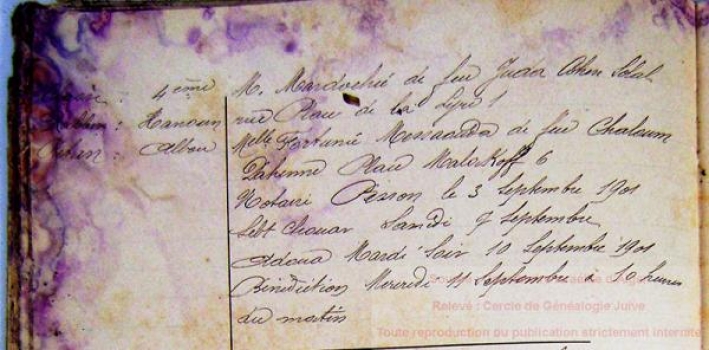 Classe : 4ème
Rabbin : Hanoun
Cohen : Albou
M. Mardochée de feu Juda Cohen Solal
rue Place de la Lyre 1
Melle Fortunée Messaouda de feu Chaloum
Dahenne Place Malakoff 6
Notaire Pesson le 3 Septembre 1901
Sebt Chouar Samedi 7 Septembre
Adoua Mardi Soir 10 Septembre 1901
Bénédiction Mercredi 11 Septembre à 10 heures
du matin
Relevé : Cercle de Généalogie Juive
Toute reproduction ou publication strictement interdite